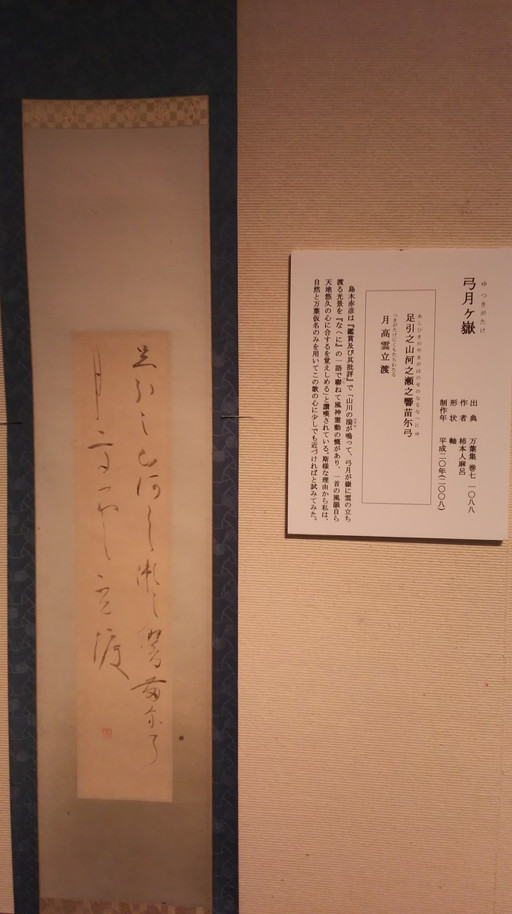 弓月ヶ嶽
ゆつきがたけ
出典 万葉集 巻七 一〇八八
作者 柿本人麻呂
形状 軸
制作年 平成二〇年(二〇〇八)
足引之山河之瀬之響苗尓弓
月高雲立渡
島木赤彦は『鑑賞及び其批評』で「山川の湍が鳴って、弓月が嶽に雲の立ち
渡る光景を『なへに』の一語で聯ねて風神霊動の慨があり、一首の風韻自ら
天地悠久の心に合するを覚えしめる」と讃嘆されている。斯様な理由から私は、
自然と万葉仮名のみを用いてこの歌の心に少しでも近づければと試みてみた。
足引之山河之瀬之響苗尓弓
月高雲立渡